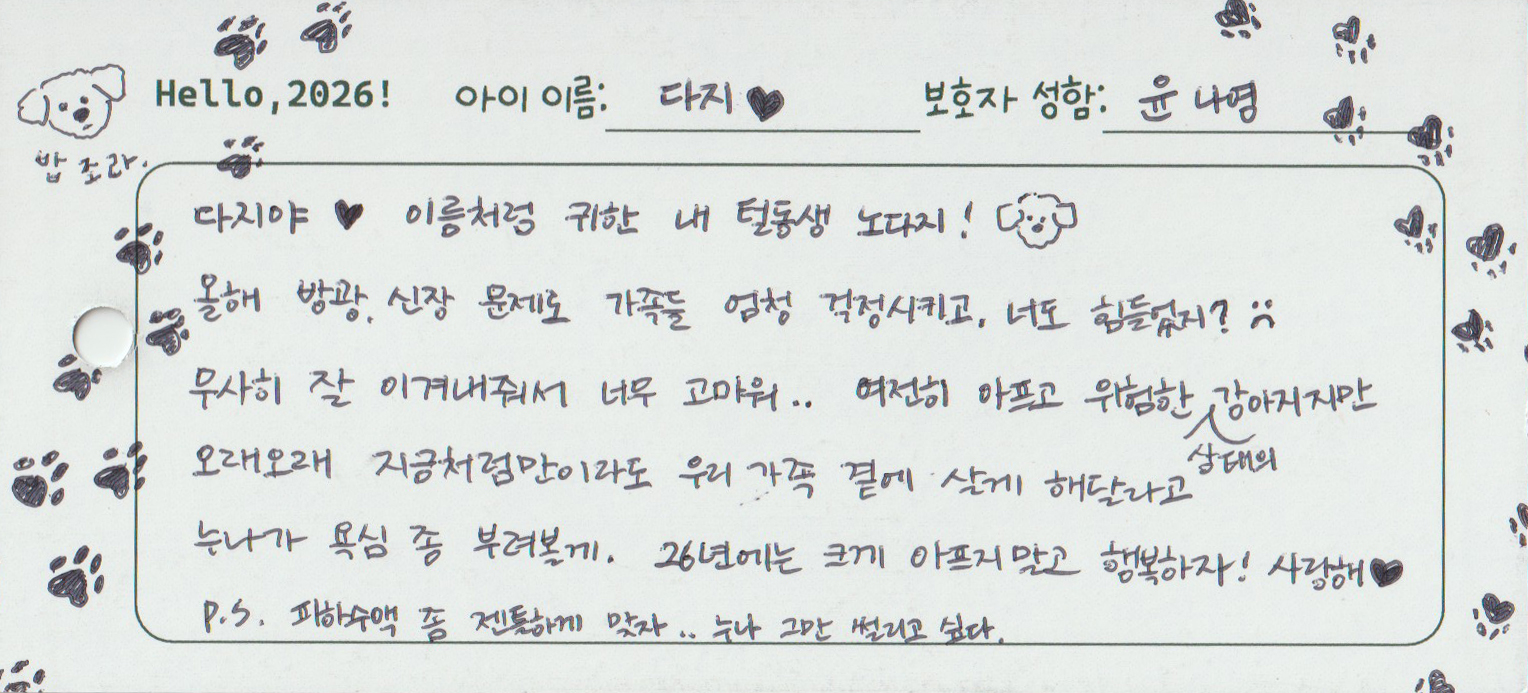 Hello,2026! 아이 이름: 다지♥ 보호자 성함: 윤 나영
밥 조라.
다지야 ♥ 이름처럼 귀한 내 털동생 노다지!
올해 방광, 신장 문제로 가족들 엄청 걱정시키고, 너도 힘들었지? :(
무사히 잘 이겨내줘서 너무 고마워.. 여전히 아프고 위험한 강아지지만
상태의
오래오래 지금처럼만이라도 우리 가족 곁에 살게 해달라고
누나가 욕심 좀 부려볼게. 26년에는 크게 아프지말고 행복하자! 사랑해♥
P.S. 피하수액 좀 젠틀하게 맞자.. 누나 그만 썰리고 싶다.